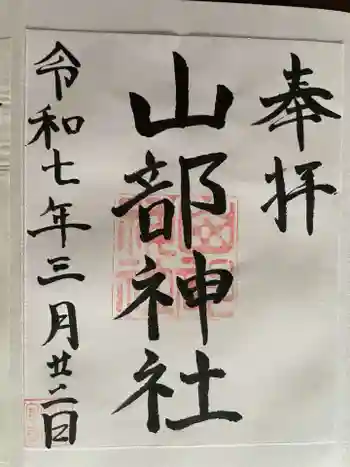 奉拝
山部神社
令和七年三月廿二日